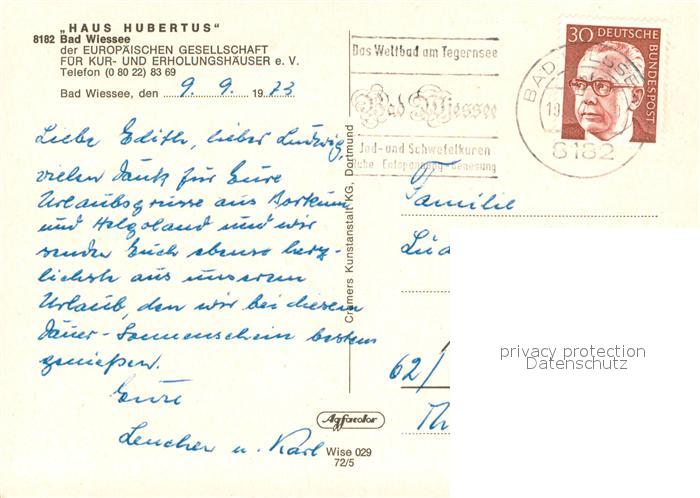 „HAUS HUBERTUS"
8182 Bad Wiessee
der EUROPÄISCHEN GESELLSCHAFT
FÜR KUR- UND ERHOLUNGSHÄUSER e. V.
Telefon (0 80 22) 83 69
Bad Wiessee, den 9. 9. 1973
Liebe Edith, lieber Ludwig,
vielen Dank für Eure
Urlaubsgrüsse aus Borkum
und Helgoland und wir
senden Euch ebenso herz-
lichst aus unserem
Urlaub, den wir bei diesem
Dauer-Sonnenschein bestens
genießen.
Eure
Lenchen u. Karl
Cramers Kunstanstalt KG, Dortmund
Agfacolor
Wise 029
72/5
Das Weltbad am Tegernsee
Bad Wiessee
Jod- und Schwefelkuren
Entspannung Genesung
BAD WIESSEE
8182
30 DEUTSCHE
BUNDESPOST
Familie
Lüd
62/
privacy protection
Datenschutz